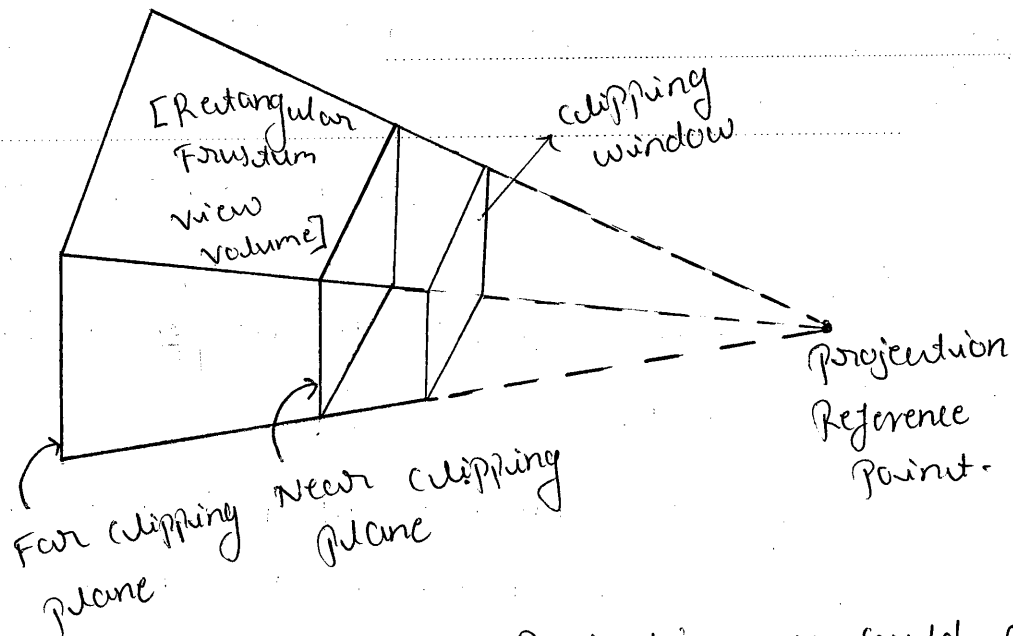 [Rectangular
Frustum
view
volume]
clipping
window
Projection
Reference
Point.
Far clipping
plane.
Near clipping
plane